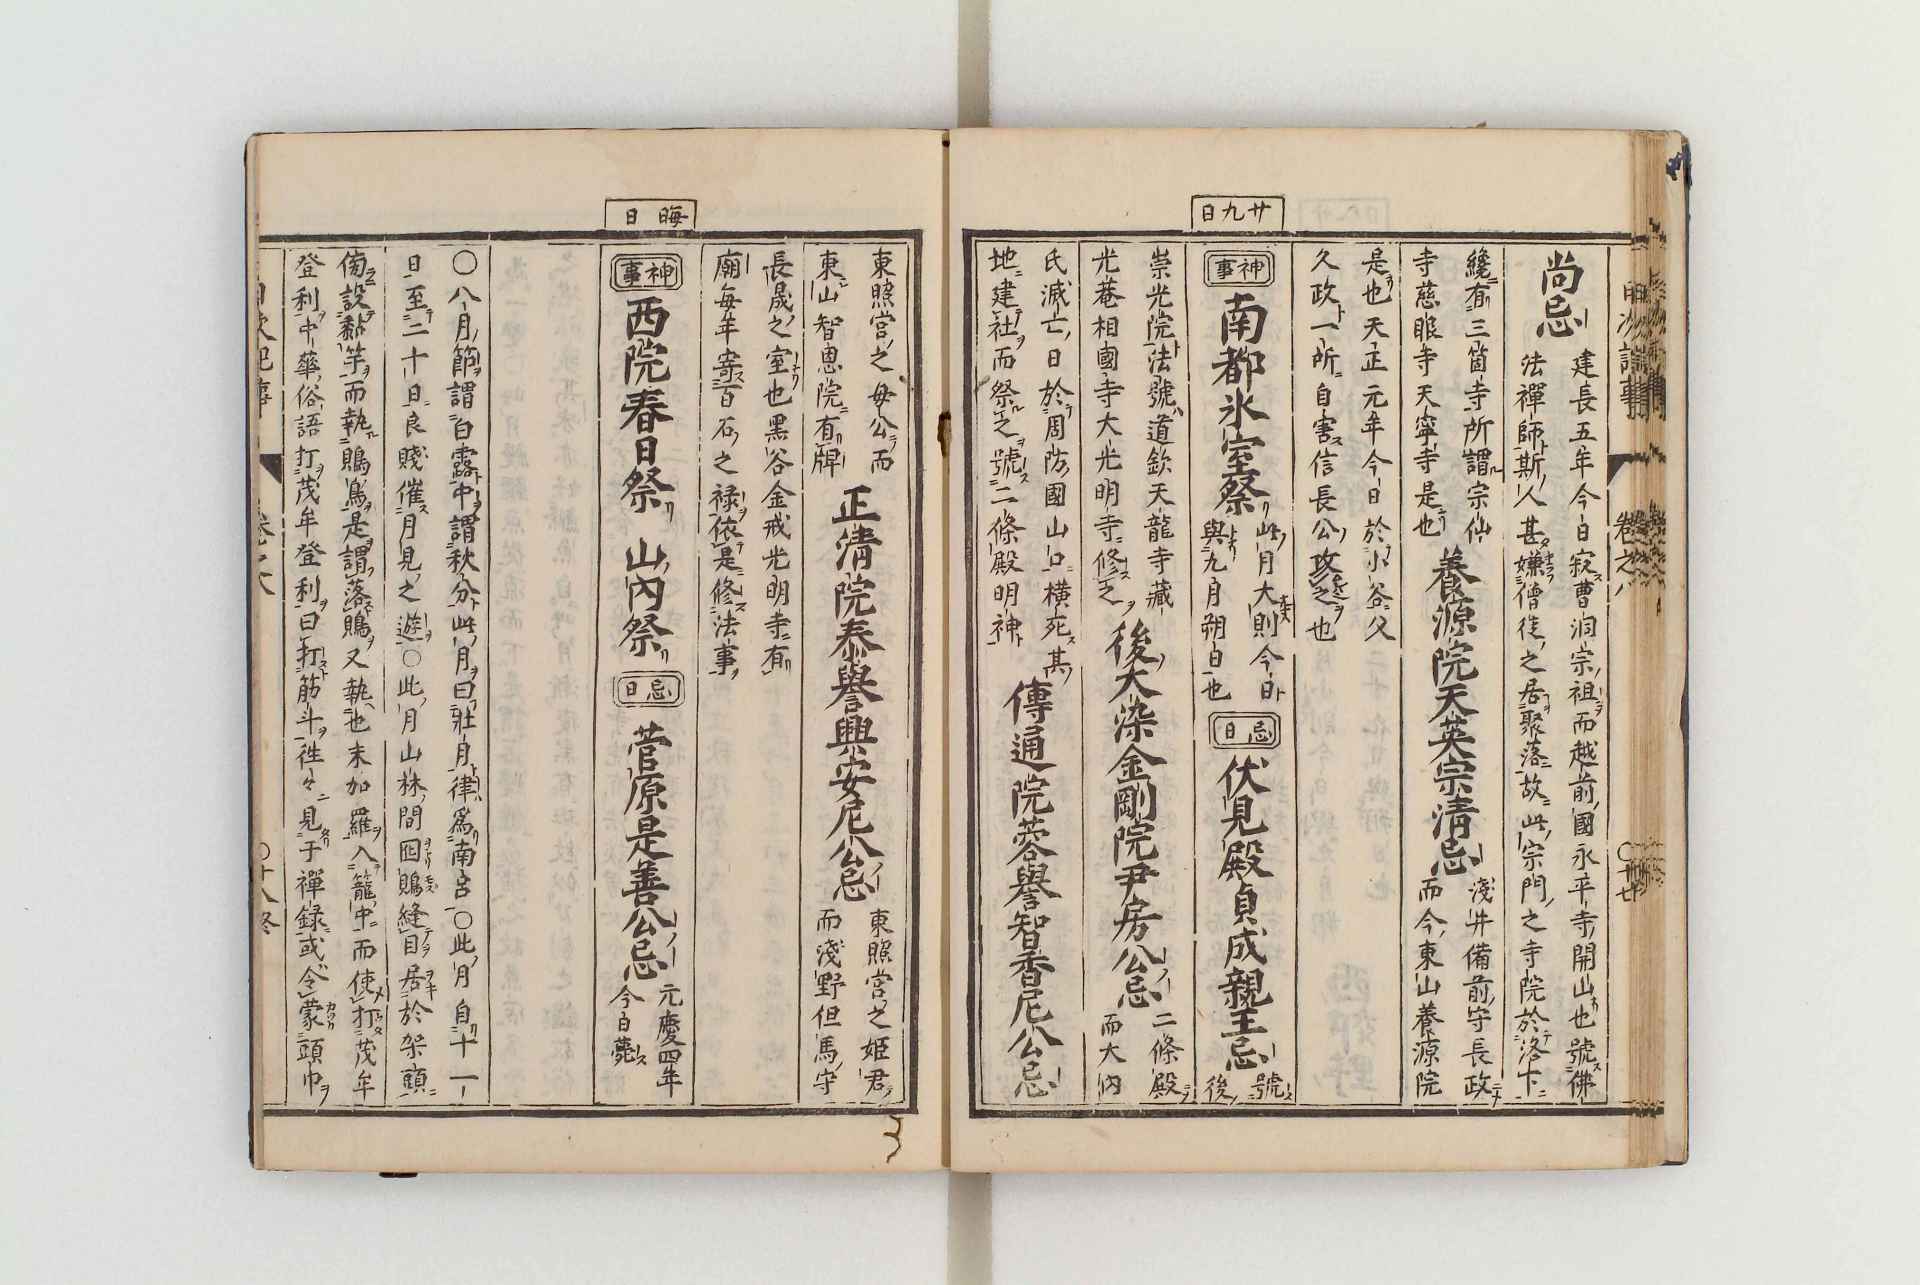 尚忌
建長五年今日寂曹洞宗祖而越前國永平寺開山也號佛
法禪師斯人甚嫌僧徒之居聚落故此宗門之寺院於洛下
纔有三箇寺所謂宗仙
寺慈眼寺天寧寺是也
養源院天英宗清忌
淺井備前守長政
而今東山養源院
是也天正元年今日於小谷父
久政一所自害信長公攻之也
廿九日
神事
南都氷室祭
此月大則今日
與九月朔日也
忌日
伏見殿貞成親王忌
號
後
崇光院法號道欽天龍寺藏
光菴相國寺大光明寺修之
後大染金剛院尹房公忌
二條殿
而大内
氏滅亡日於周防國山口横死其
地建社而祭之號二條殿明神
傳通院蓉譽智香尼公忌
東照宮之母公而
東山智恩院有牌
正清院泰譽興安尼公忌
東照宮之姫君
而淺野但馬守
長晟之室也黑谷金戒光明寺有
廟毎年寄百石之禄依是修法事
晦日
神事
西院春日祭
山内祭
忌日
菅原是善公忌
元慶四年
今日薨
〇八月節謂白露中謂秋分此月曰壯月律爲南呂〇此月自十一
日至二十日良賤催月見之遊〇此月山林間囮鵙縫目居於架頭
傍設黏竿而執鵙鳥是謂落鵙又執也末加羅入籠中而使打茂牟
登利中華俗語打茂牟登利曰打筋斗徃々見于禪録或令蒙頭巾
卷之八